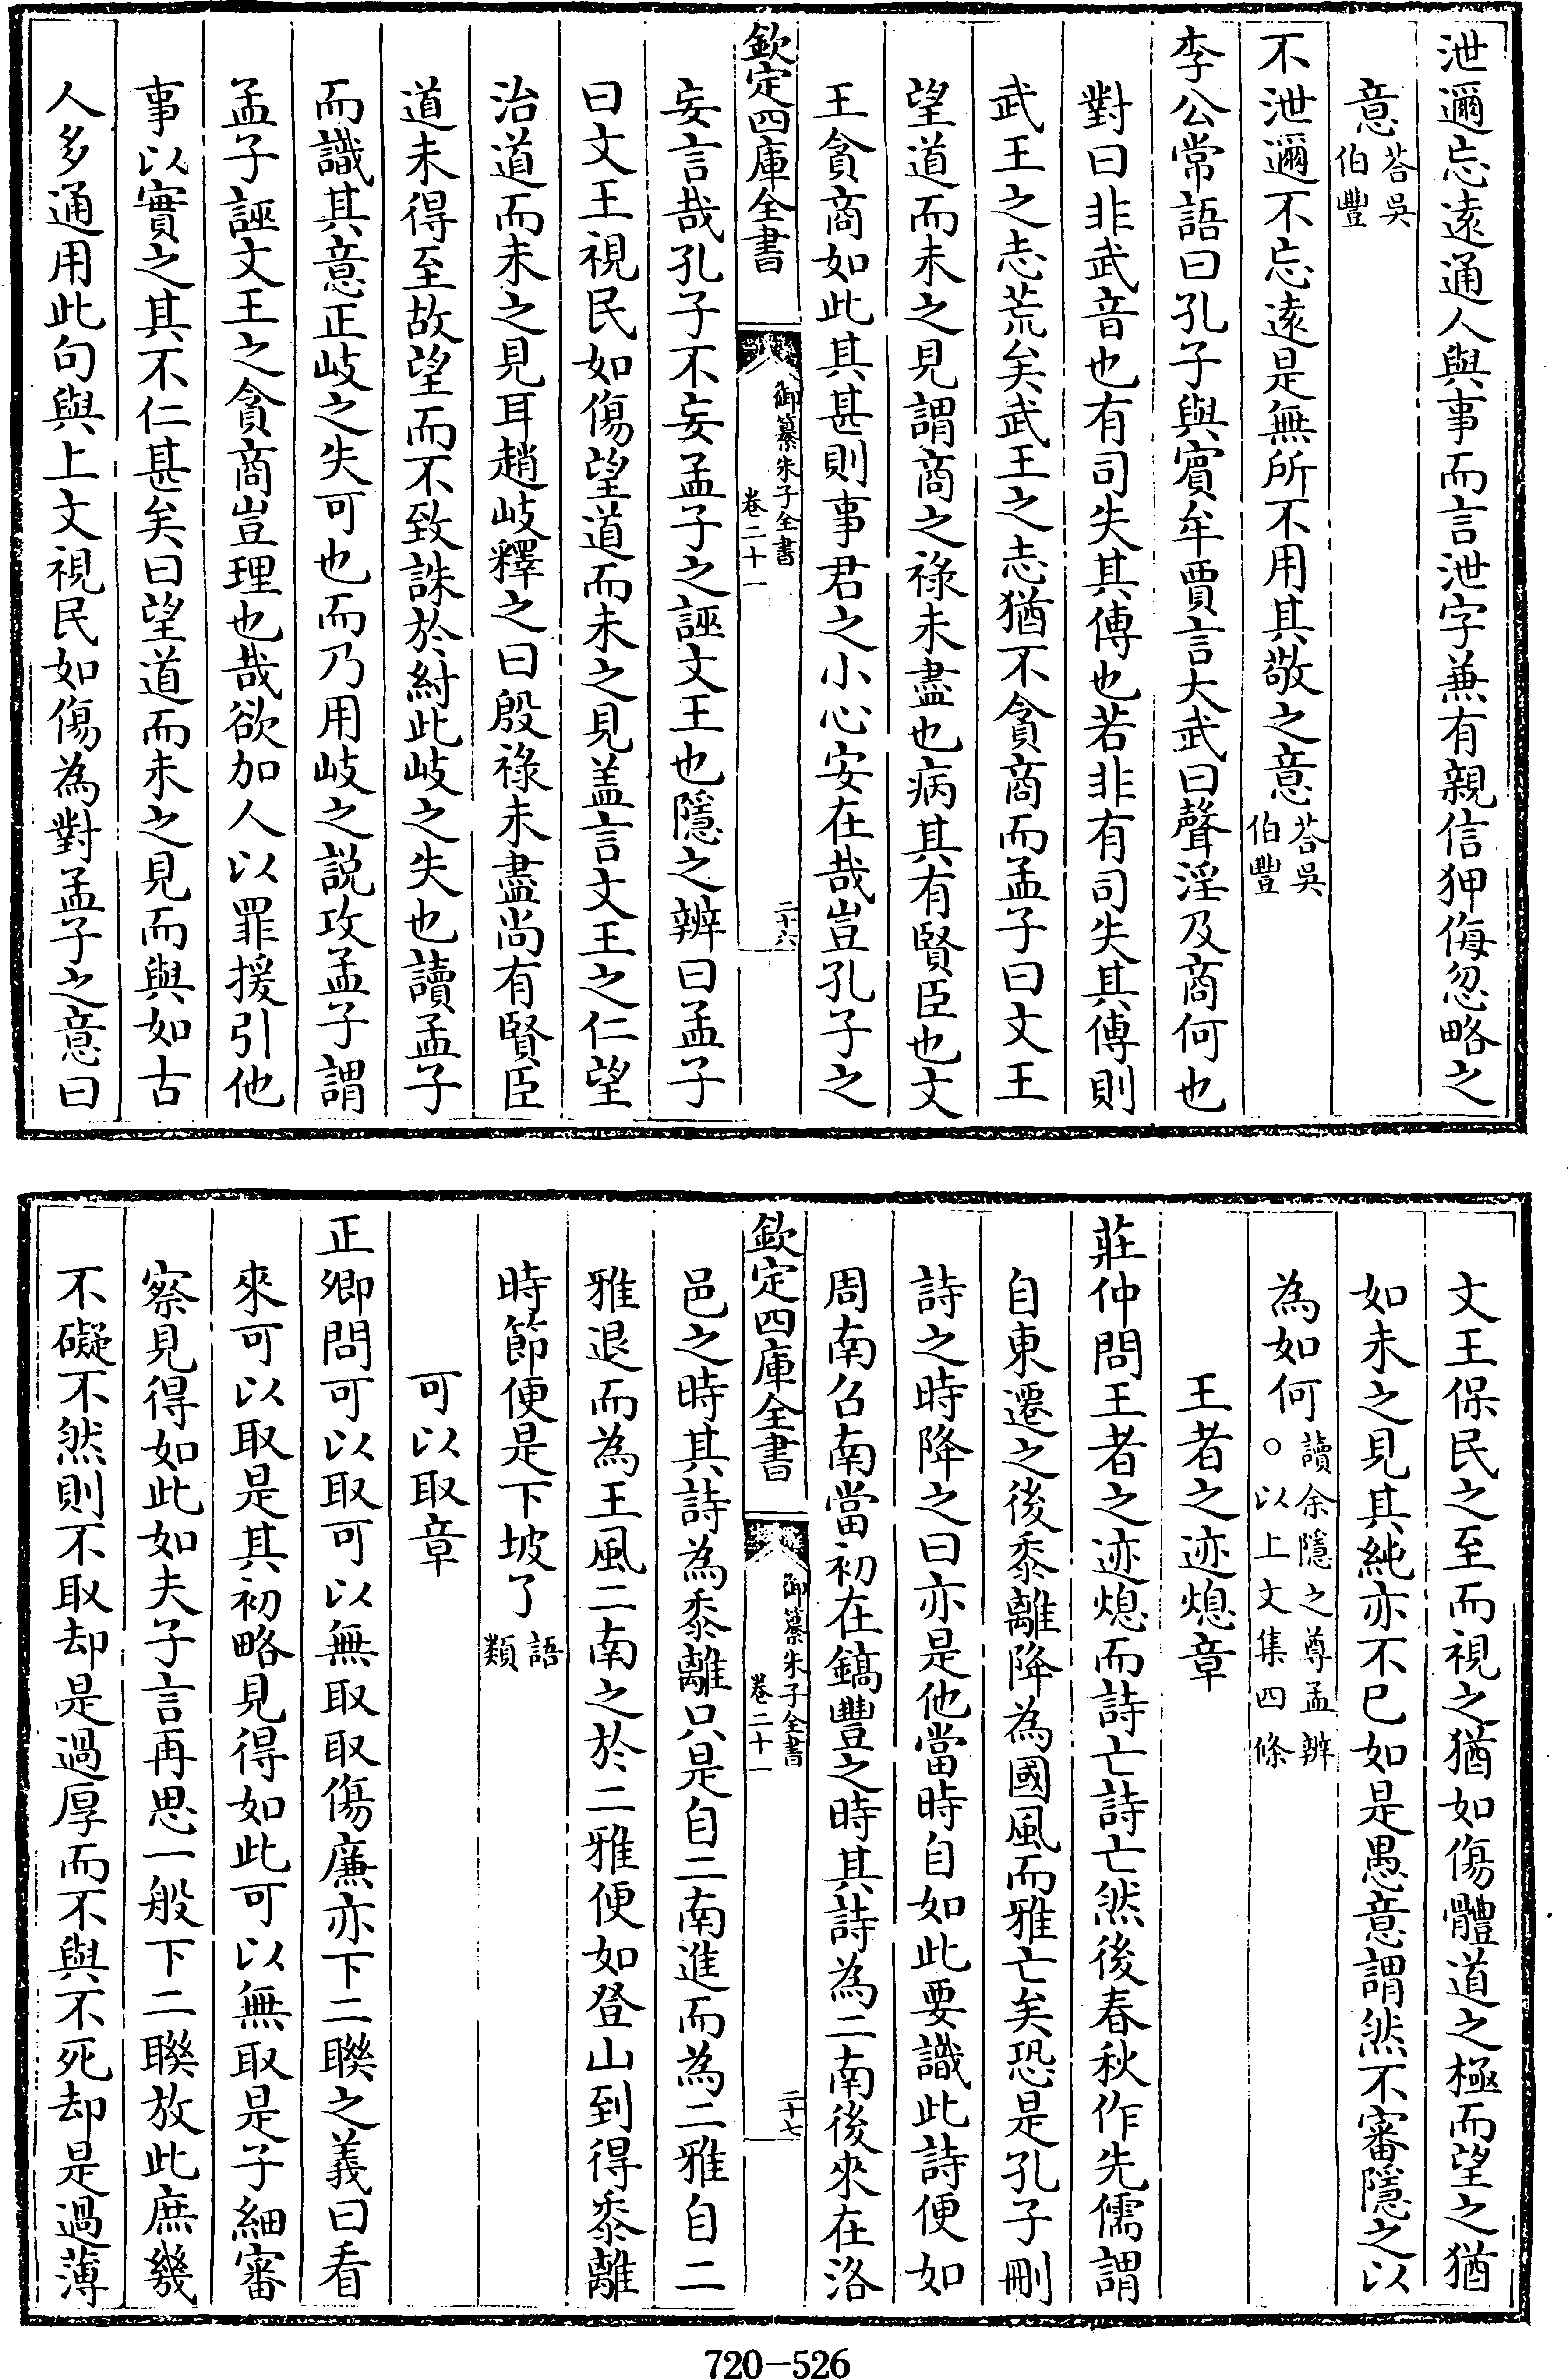 泄邇忘遠通人與事而言泄字兼有親信狎侮忽略之
意荅吳伯豐
不泄邇不忘遠是無所不用其敬之意荅吳伯豐
李公常語曰孔子與賓牟賈言大武曰聲淫及商何也
對曰非武音也有司失其傳也若非有司失其傳則
武王之志荒矣武王之志猶不貪商而孟子曰文王
望道而未之見謂商之祿未盡也病其有賢臣也文
王貪商如此其甚則事君之小心安在哉豈孔子之
欽定四庫全書
御纂朱子全書
卷二十一
二十六
妄言哉孔子不妄孟子之誣文王也隱之辨曰孟子
曰文王視民如傷望道而未之見盖言文王之仁望
治道而未之見耳趙岐釋之曰殷祿未盡尚有賢臣
道未得至故望而不致誅於紂此岐之失也讀孟子
而識其意正岐之失可也而乃用岐之説攻孟子謂
孟子誣文王之貪商豈理也哉欲加人以罪援引他
事以實之其不仁甚矣曰望道而未之見而與如古
人多通用此句與上文視民如傷為對孟子之意曰
文王保民之至而視之猶如傷體道之極而望之猶
如未之見其純亦不已如是愚意謂然不審隱之以
為如何讀余隱之尊孟辨○以上文集四條
王者之迹熄章
莊仲問王者之迹熄而詩亡詩亡然後春秋作先儒謂
自東遷之後黍離降為國風而雅亡矣恐是孔子刪
詩之時降之曰亦是他當時自如此要識此詩便如
周南召南當初在鎬豐之時其詩為二南後來在洛
欽定四庫全書
御纂朱子全書
卷二十一
二十七
邑之時其詩為黍離只是自二南進而為二雅自二
雅退而為王風二南之於二雅便如登山到得黍離
時節便是下坡了語類
可以取章
正卿問可以取可以無取取傷廉亦下二聯之義曰看
來可以取是其初略見得如此可以無取是子細審
察見得如此如夫子言再思一般下二聯放此庶幾
不礙不然則不取却是過厚而不與不死却是過薄
720-526